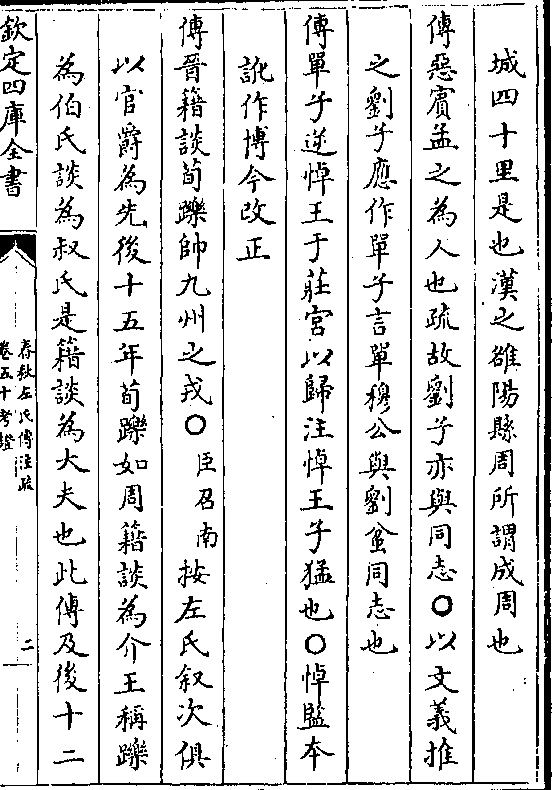 城四十里是也漢之雒陽縣周所謂成周也
傳惡賓孟之為人也疏故劉子亦與同志○以文義推
之劉子應作單子言單穆公與劉蚠同志也
傳單子逆悼王于莊宮以歸注悼王子猛也○悼監本
訛作博今改正
傳晉籍談荀躒帥九州之戎○臣召南按左氏叙次俱
以官爵為先後十五年荀躒如周籍談為介王稱躒
為伯氏談為叔氏是籍談為大夫也此傳及後十二
欽定四庫全書
春秋左氏傳注疏
卷五十考證
二